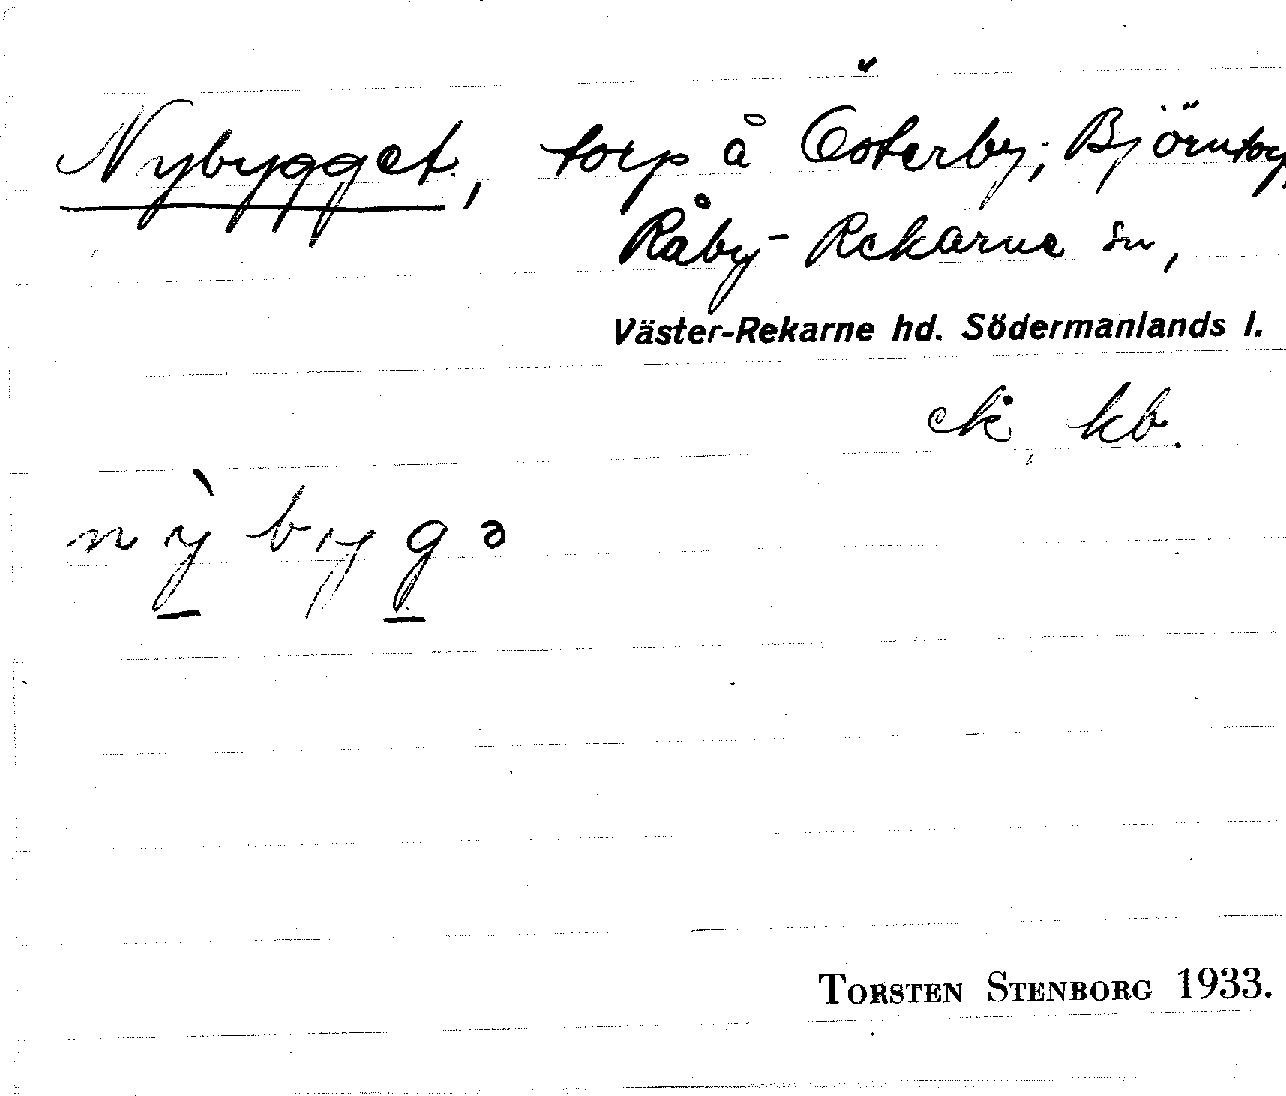 Nybygget, torp å Österby; Björntorp,
Råby-Rekarne sn,
Väster-Rekarne hd. Södermanlands l.
ek, kb.
nỳbygə
TORSTEN STENBORG 1933.